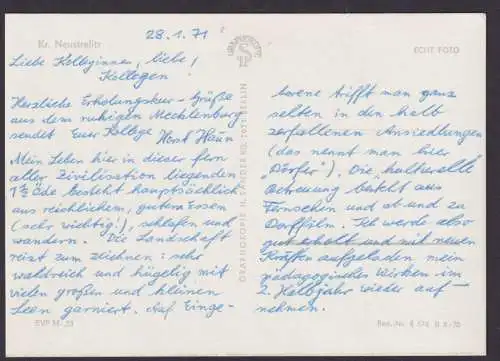 28.1.71
Kr. Neustrelitz
ECHT FOTO
Liebe Kolleginnen, liebe
Kollegen!
Herzliche Erholungskur-Grüße
aus dem ruhigen Mecklenburg
sendet Euer Kollege
Horst
Mein Leben hier in dieser fern
aller Zivilisation liegenden
Öde besteht hauptsächlich
aus reichlichem, gutem Essen
(sehr wichtig!), schlafen und
wandern. Die Landschaft
reizt zum zeichnen: sehr
waldreich und hügelig mit
vielen großen und kleinen
Seen garniert. Auf Einge-
borene trifft man ganz
selten in den halb
zerfallenen Ansiedlungen
(das nennt man hier
„Dörfer"). Die kulturelle
Betreuung besteht aus
Fernsehen und ab und zu
Dorffilm. Ich werde also
gut erholt und mit neuen
Kräften aufgeladen mein
pädagogisches Wirken im
2. Halbjahr wieder auf-
nehmen.
EVP M -,20